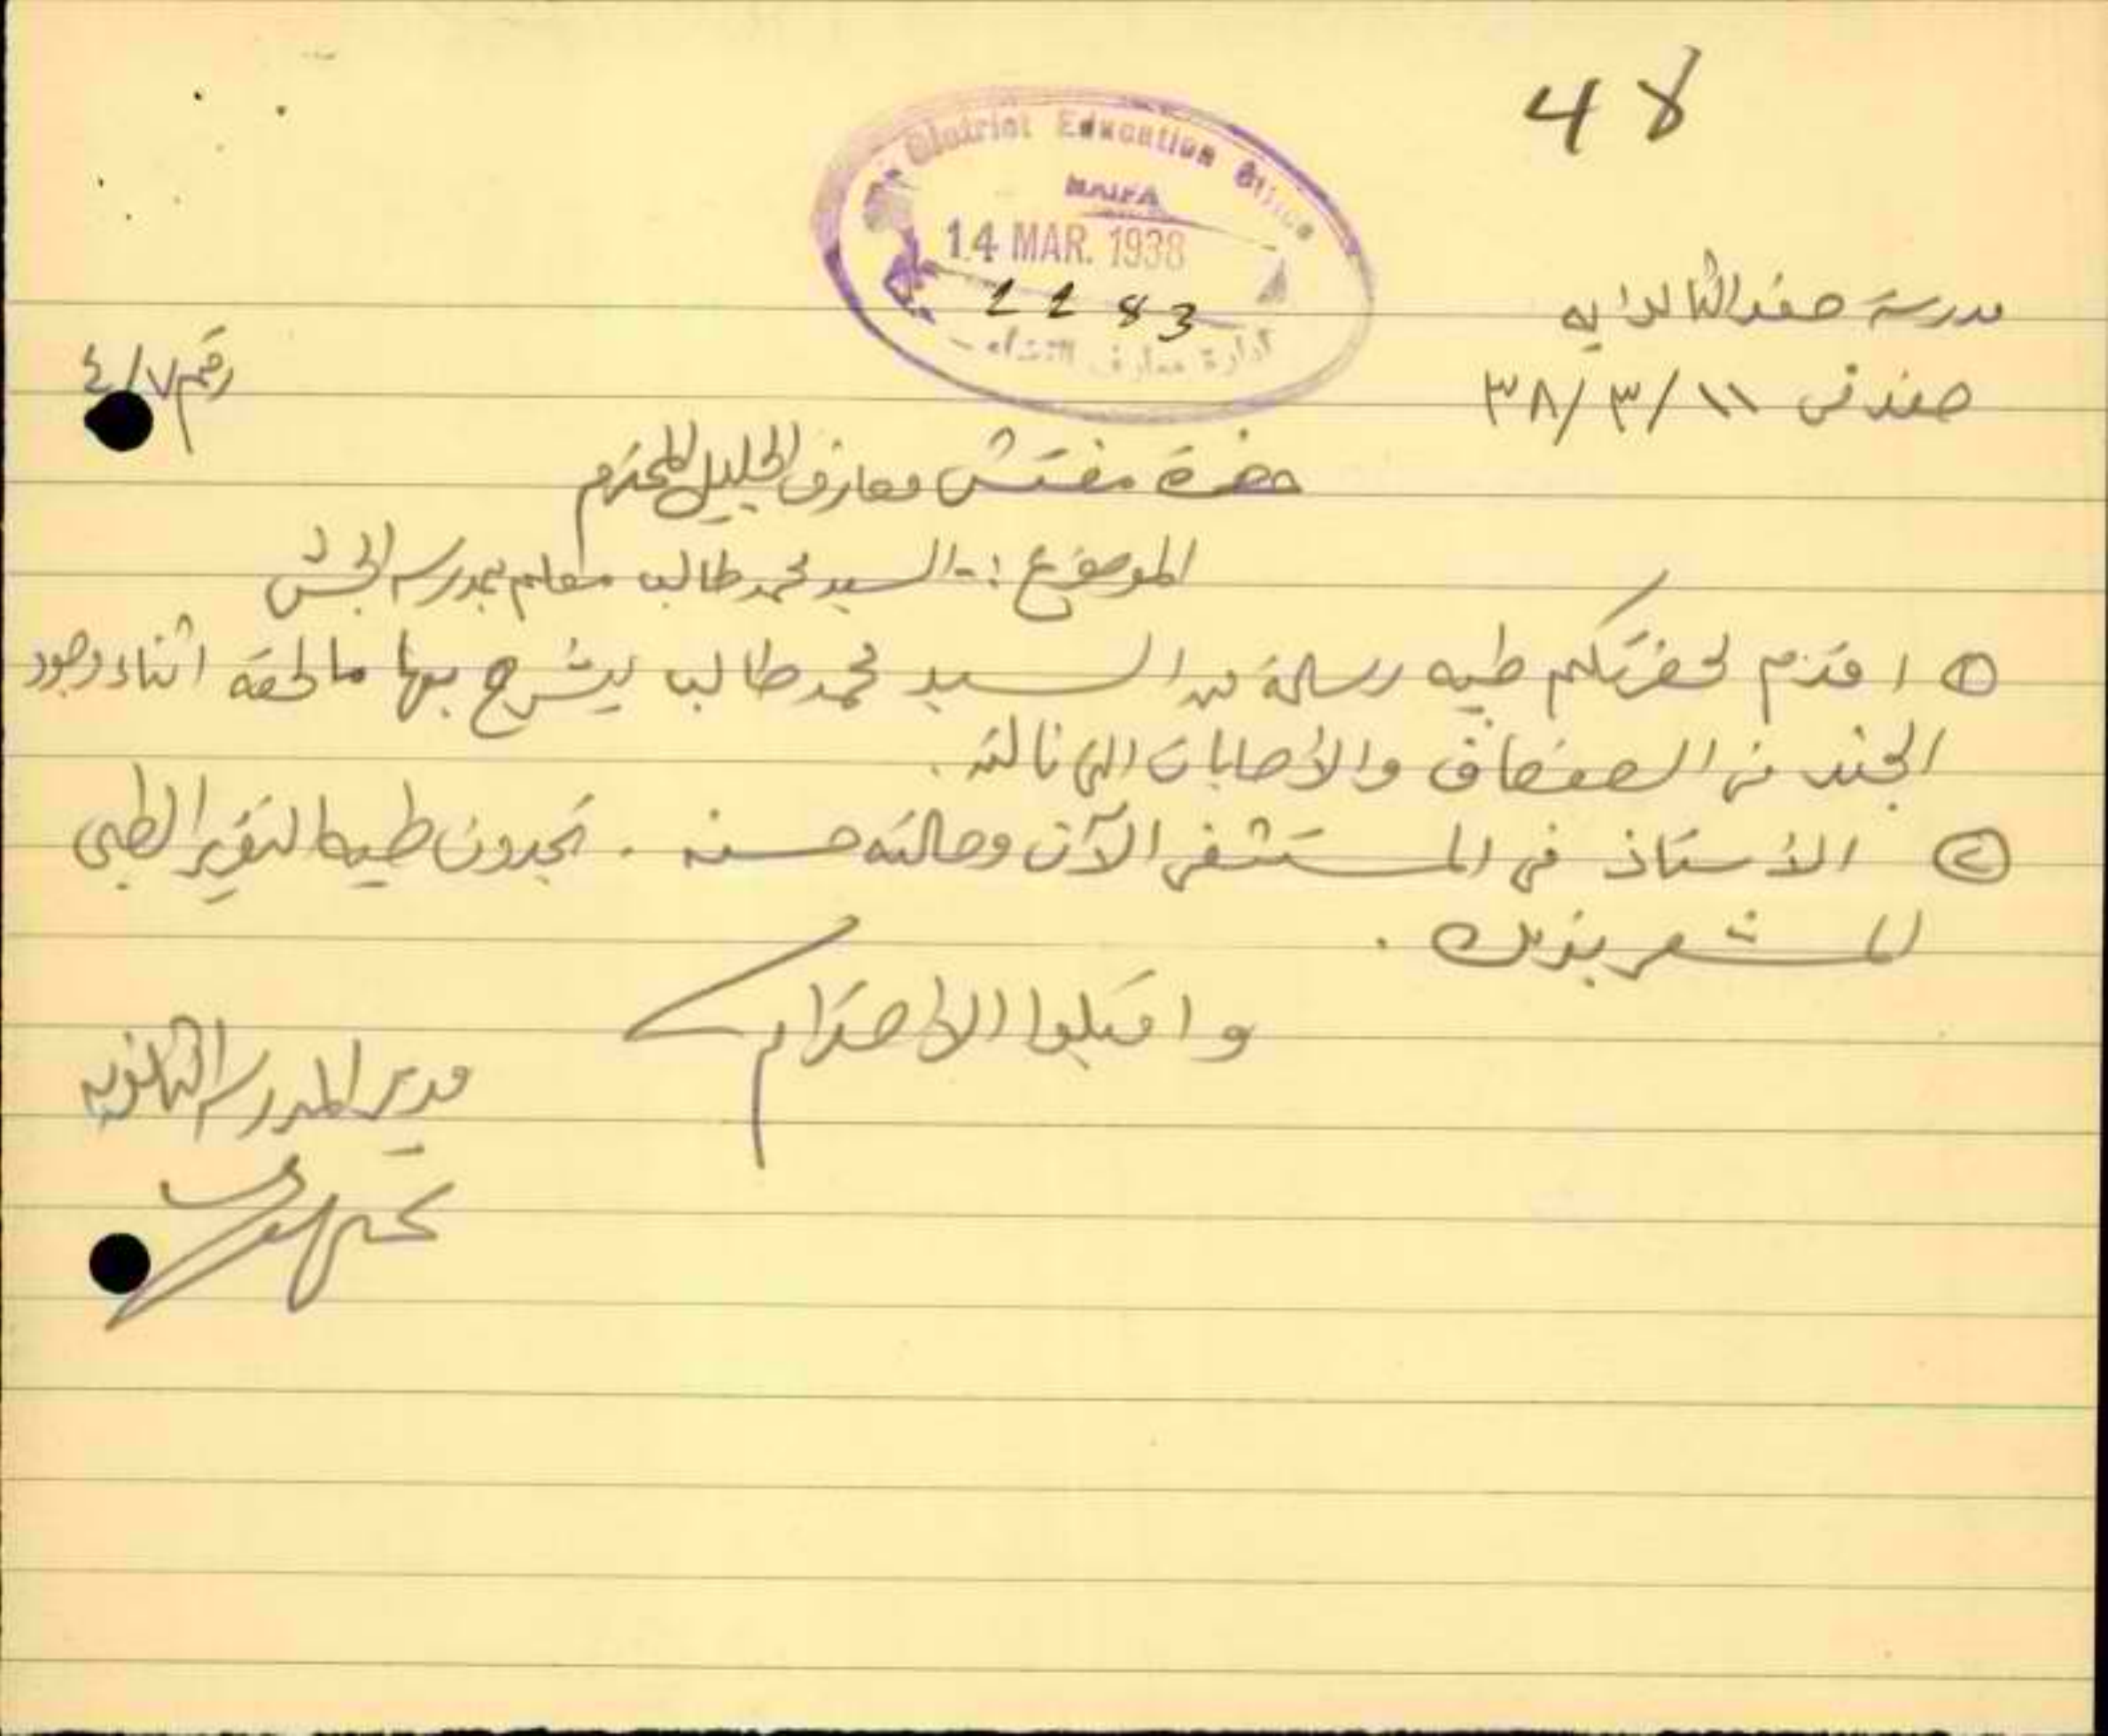 48
District Education Office
HAIFA
14 MAR. 1938
2283
ادارة معارف اللواء
مدرسة صفد الثانوية
صفد في ١١/٣/٣٨
رقم ٤/٧
حضرة مفتش معارف الجليل المحترم
الموضوع :- السيد محمد طالب معلم بمدرسة الجش
① اقدم لحضرتكم طيه رسالة من السيد محمد طالب يشرح بها ما لحقه اثناء وجود
الجند في الصفصاف والأصابات التي نالته .
② الأستاذ في المستشفى الآن وحالته حسنه . تجدون طيه التقرير الطبي
المشعر بذلك .
واقبلوا الاحترام
مدير المدرسة الثانويه